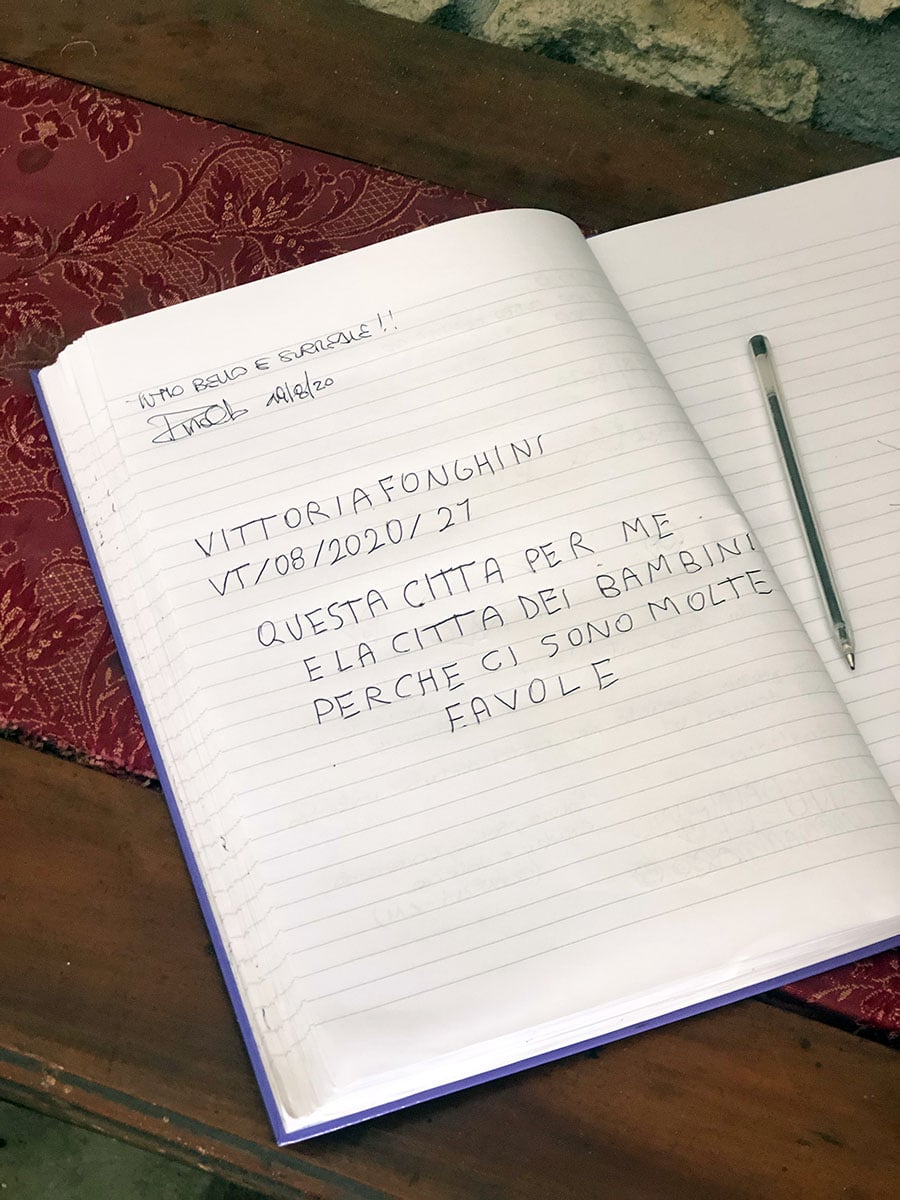 TUTTO BELLO E SURREALE!!
19/8/20
VITTORIA FONGHINI
VT/08/2020/27
QUESTA CITTA PER ME
E LA CITTA DEI BAMBINI
PERCHE CI SONO MOLTE
FAVOLE